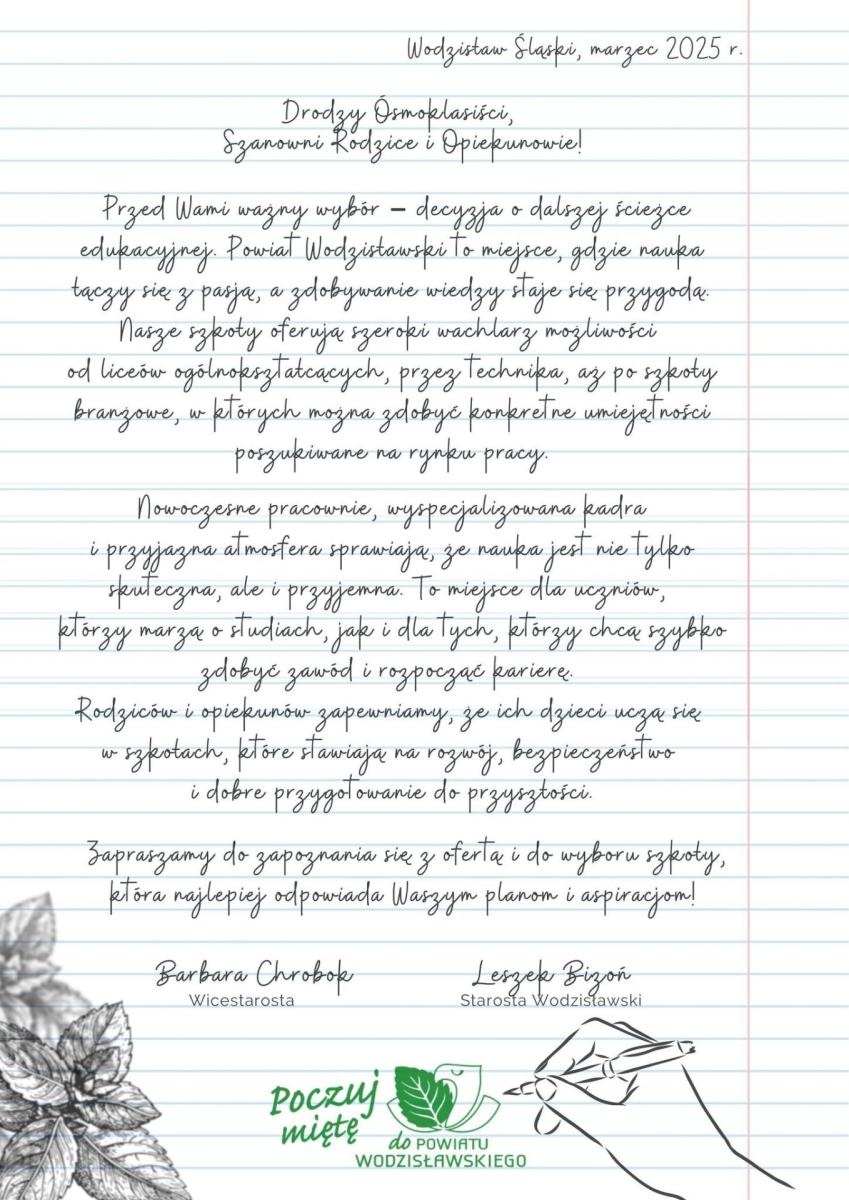 Wodzisław Śląski, marzec 2025 r.
Drodzy Ósmoklasiści,
Szanowni Rodzice i Opiekunowie!
Przed Wami ważny wybór – decyzja o dalszej ścieżce
edukacyjnej. Powiat Wodzisławski to miejsce, gdzie nauka
łączy się z pasją, a zdobywanie wiedzy staje się przygodą.
Nasze szkoły oferują szeroki wachlarz możliwości
od liceów ogólnokształcących, przez technika, aż po szkoły
branżowe, w których można zdobyć konkretne umiejętności
poszukiwane na rynku pracy.
Nowoczesne pracownie, wyspecjalizowana kadra
i przyjazna atmosfera sprawiają, że nauka jest nie tylko
skuteczna, ale i przyjemna. To miejsce dla uczniów,
którzy marzą o studiach, jak i dla tych, którzy chcą szybko
zdobyć zawód i rozpocząć karierę.
Rodziców i opiekunów zapewniamy, że ich dzieci uczą się
w szkołach, które stawiają na rozwój, bezpieczeństwo
i dobre przygotowanie do przyszłości.
Zapraszamy do zapoznania się z ofertą i do wyboru szkoły,
która najlepiej odpowiada Waszym planom i aspiracjom!
Barbara Chrobok
Wicestarosta
Leszek Bizoń
Starosta Wodzisławski
Poczuj
miętę
do POWIATU
WODZISŁAWSKIEGO